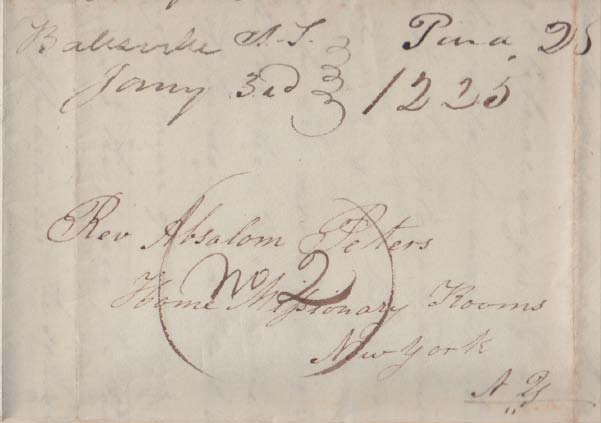 Batesville A.T. Paid 25
Jany 3rd 1225
Rev Absalom Peters
No 2
Home Missionary Rooms
New York
N Y